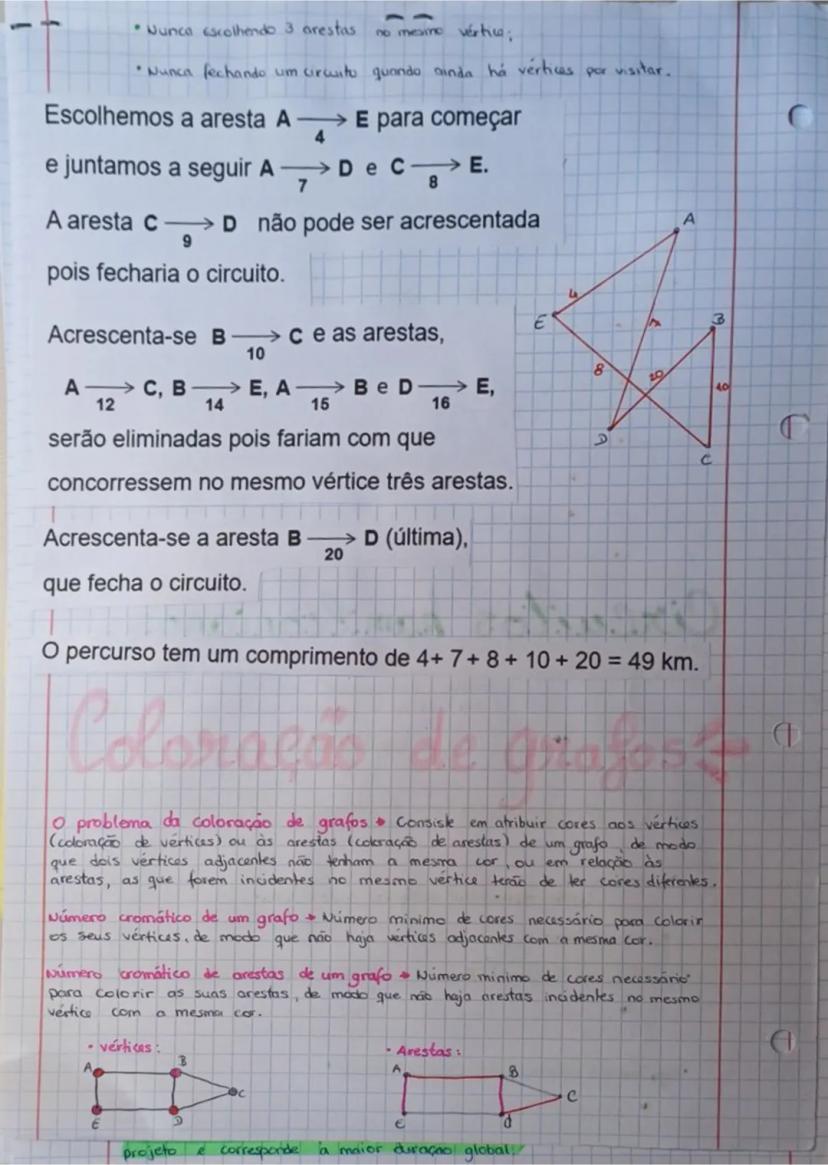 • Nunca escolhendo 3 arestas no mesmo vértice;
• Nunca fechando um circuito quando ainda há vértices por visitar.
Escolhemos a aresta A → E para começar
4
e juntamos a seguir A → D e C → E.
7 8
A aresta C → D não pode ser acrescentada
9
pois fecharia o circuito.
Acrescenta-se B → C e as arestas,
10
A → C, B → E, A → B e D → E,
12 14 15 16
serão eliminadas pois fariam com que
concorressem no mesmo vértice três arestas.
A
4
E
7
B
8
20
10
D
C
Acrescenta-se a aresta B → D (última),
20
que fecha o circuito.
O percurso tem um comprimento de 4+ 7 + 8 + 10 + 20 = 49 km.
Coloração de grafos
O problema da coloração de grafos → Consiste em atribuir cores aos vértices
(coloração de vértices) ou às arestas (coloração de arestas) de um grafo, de modo
que dois vértices adjacentes não tenham a mesma cor, ou em relação às
arestas, as que forem incidentes no mesmo vértice terão de ter cores diferentes.
Número cromático de um grafo → Número mínimo de cores necessário para colorir
os seus vértices, de modo que não haja vértices adjacentes com a mesma cor.
Número cromático de arestas de um grafo → Número mínimo de cores necessário
para colorir as suas arestas, de modo que não haja arestas incidentes no mesmo
vértice com a mesma cor.
• vértices:
A B
C
E D
• Arestas:
A B
C
e d
projeto e corresponde à maior duração global.